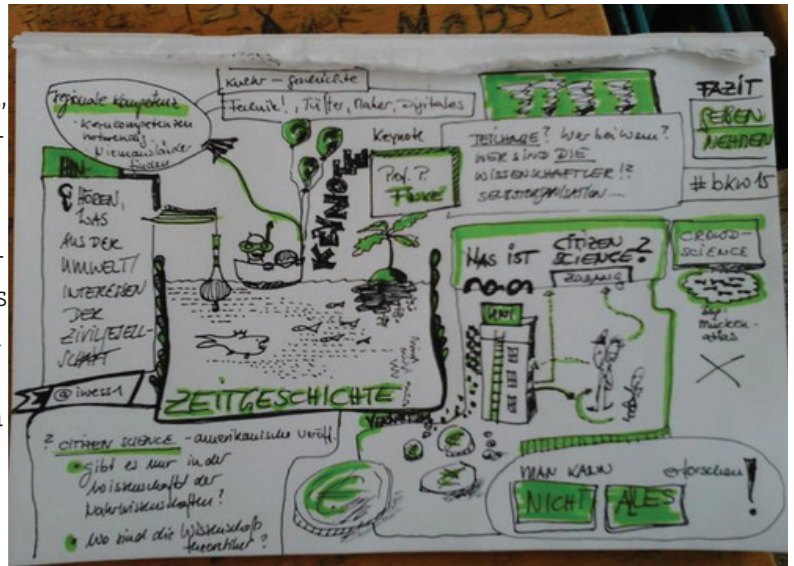 regionale Kompetenz
- Kerncompetenzen
notwendig
- Niemandsländer
finden
Technik!, Tüftler, Maker, Digitales
Keynote
Prof. P.
FINKE
KEYNOTE
TEILHABE? Wer bei Wem?
WER SIND DIE
WISSENSCHAFTLER!?
SELBSTORGANISATION....
FAZIT
GEBEN
NEHMEN
#bkw15
HIN-
HÖREN,
WAS
AUS DER
UMWELT/
INTERESSEN
DER
ZIVILGESELL-
SCHAFT
@iwess1
ZEITGESCHICHTE
WAS IST CITIZEN
SCIENCE?
ZUGANG
UNI
CROWD-
SCIENCE
mücken-
atlas
? CITIZEN SCIENCE - amerikanische Veröff.
gibt es nur in der
Wissenschaft der
Naturwissenschaften?
Wo sind die Wissenschafts
theoretiker?
€
MAN KANN erforschen!
NICHT ALLES